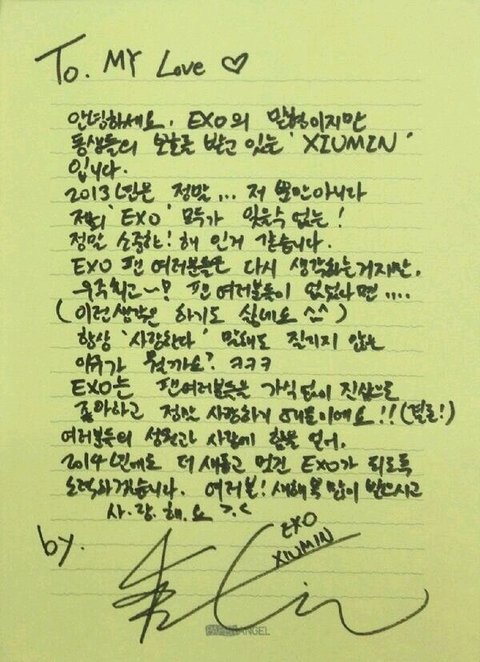 To. MY Love ♡
안녕하세요, EXO의 맏형이지만
동생들의 보호를 받고 있는 'XIUMIN'
입니다.
2013년은 정말... 저 뿐만 아니라
저희 'EXO' 모두가 잊을수 없는!
정말 소중한! 해 인거 같습니다.
EXO 팬 여러분들은 다시 생각하는거지만,
우주최고~! 팬 여러분들이 없었다면....
(이런생각은 하기도 싫네요 ^^)
항상 '사랑한다' 말해도 질리지 않는
이유가 뭘까요? ㅋㅋㅋ
EXO는 팬여러분들을 가식없이 진심으로
좋아하고 정말 사랑하기 때문이에요!! (결론!)
여러분들의 성원과 사랑에 힘을 얻어,
2014년에도 더 새롭고 멋진 EXO가 되도록
노력하겠습니다. 여러분! 새해복많이 받으시고
사.랑.해.요 >.<
by.
EXO
XIUMIN
ANGEL